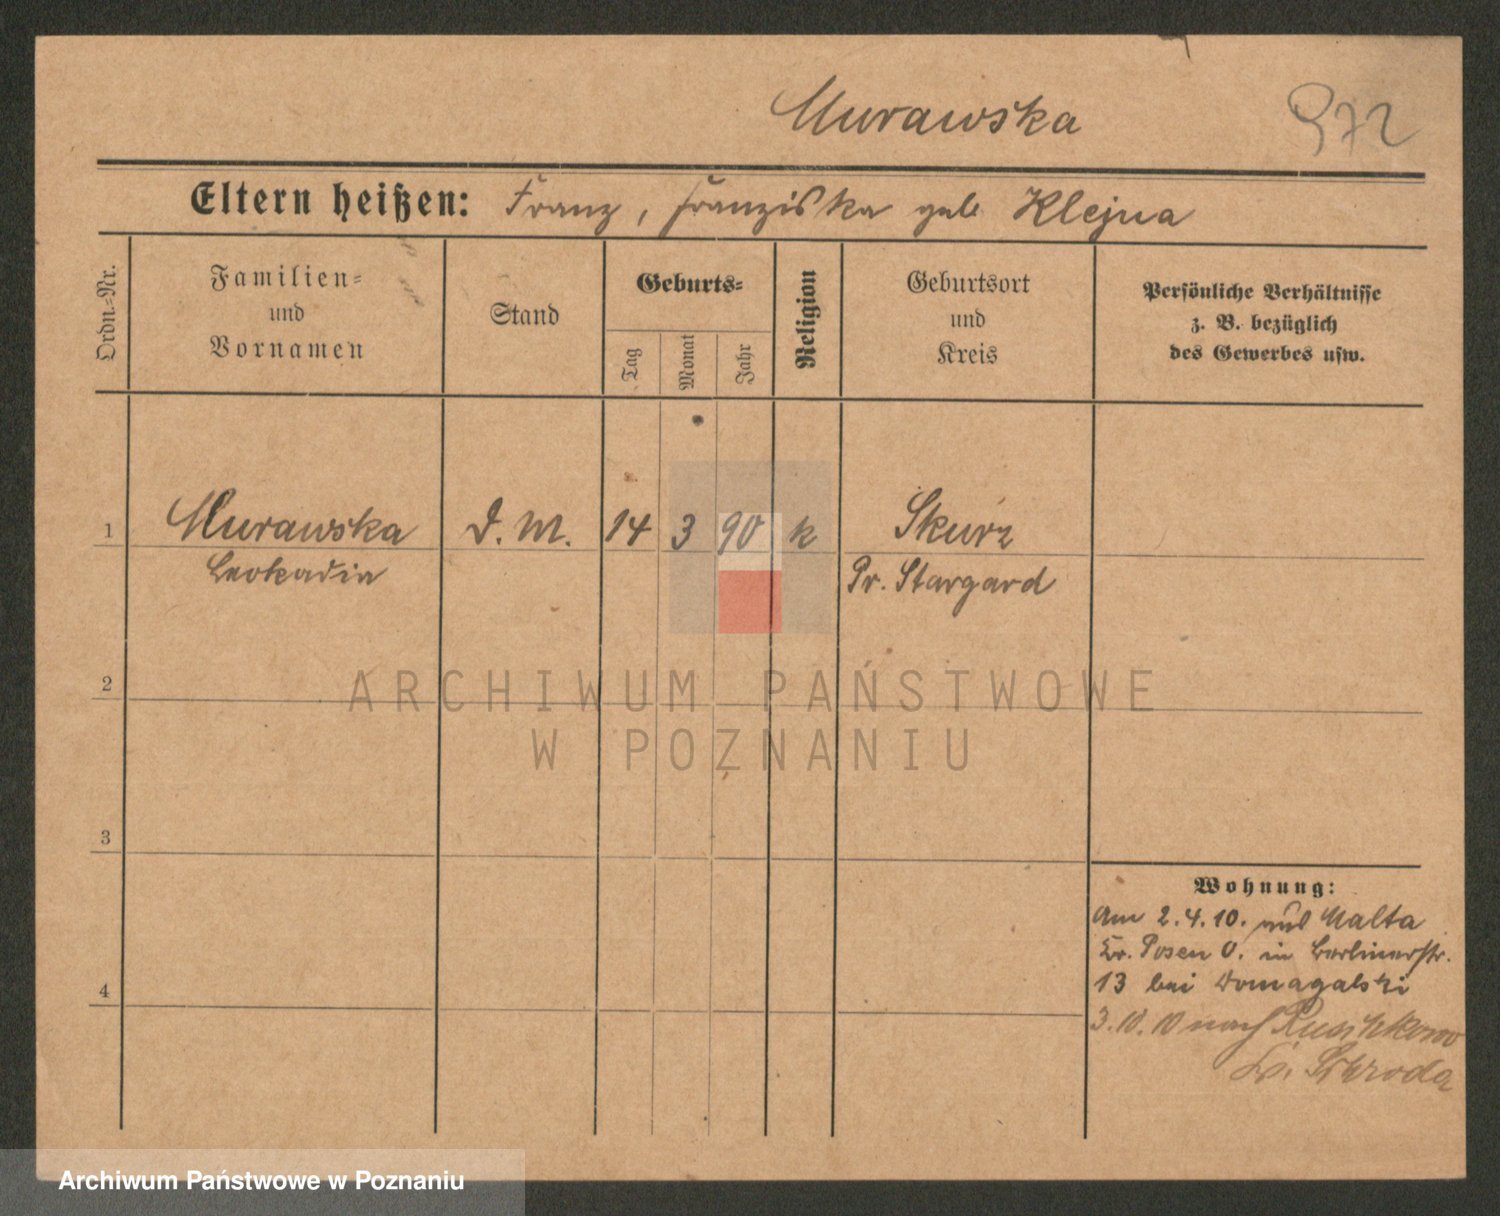 Murawska
972
Eltern heißen: Franz, Franziska geb. Klejna
Ordn.=Nr.
Familien=
und
Vornamen
Stand
Geburts=
Tag
Monat
Jahr
Religion
Geburtsort
und
Kreis
Persönliche Verhältnisse
z. B. bezüglich
des Gewerbes usw.
1 Murawska D. M. 14 3 90 k Skurz
Leokadia Pr. Stargard
2
ARCHIWUM PAŃSTWOWE
W POZNANIU
3
Wohnung:
Am 2.4.10. aus Malta
Kr. Posen O. in Berlinerstr.
13 bei Domagalski
4
3.10.10 nach
Kr. Schroda
Archiwum Państwowe w Poznaniu